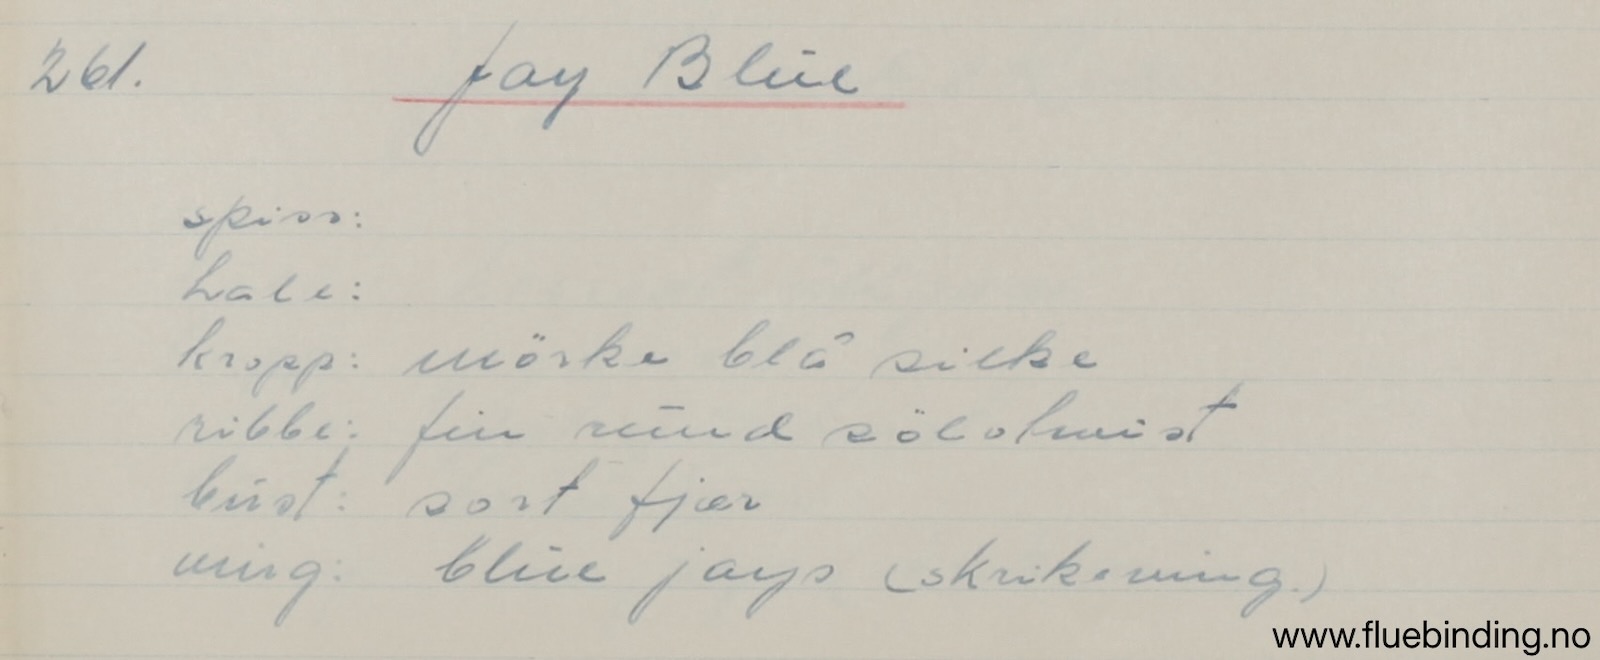 261. Jay Blue
spiss:
hale:
kropp: mörke blå silke
ribbe: fin rund sölvtwist
bust: sort fjær
ving: blue jays (skrikeving.)
www.fluebinding.no